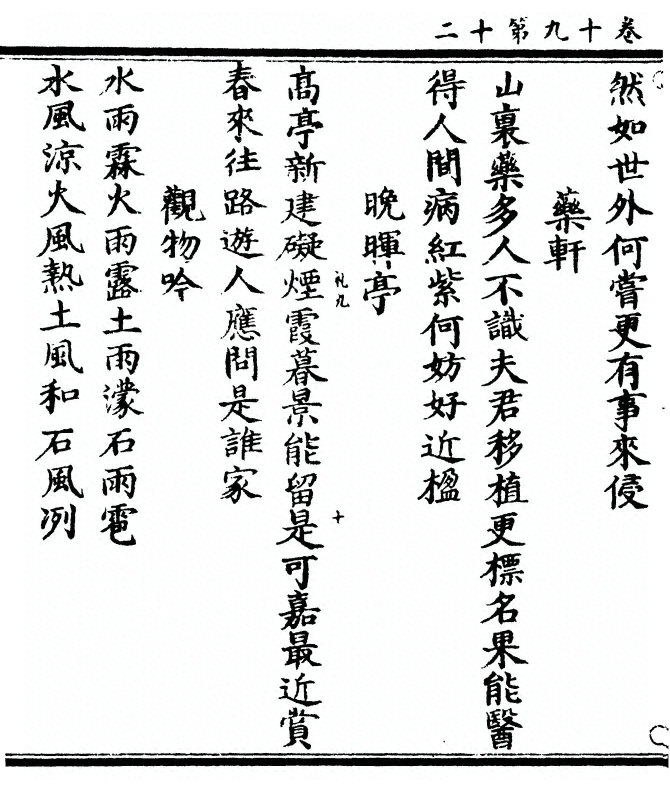 卷十九第十二
然如世外何嘗更有事來侵
藥軒
山裏藥多人不識夫君移植更標名果能醫
得人間病紅紫何妨好近楹
晚暉亭
礼九
高亭新建礙煙霞暮景能留是可嘉最近賞
十
春來往路遊人應問是誰家
觀物吟
水雨霖火雨露土雨濛石雨雹
水風涼火風熱土風和石風冽